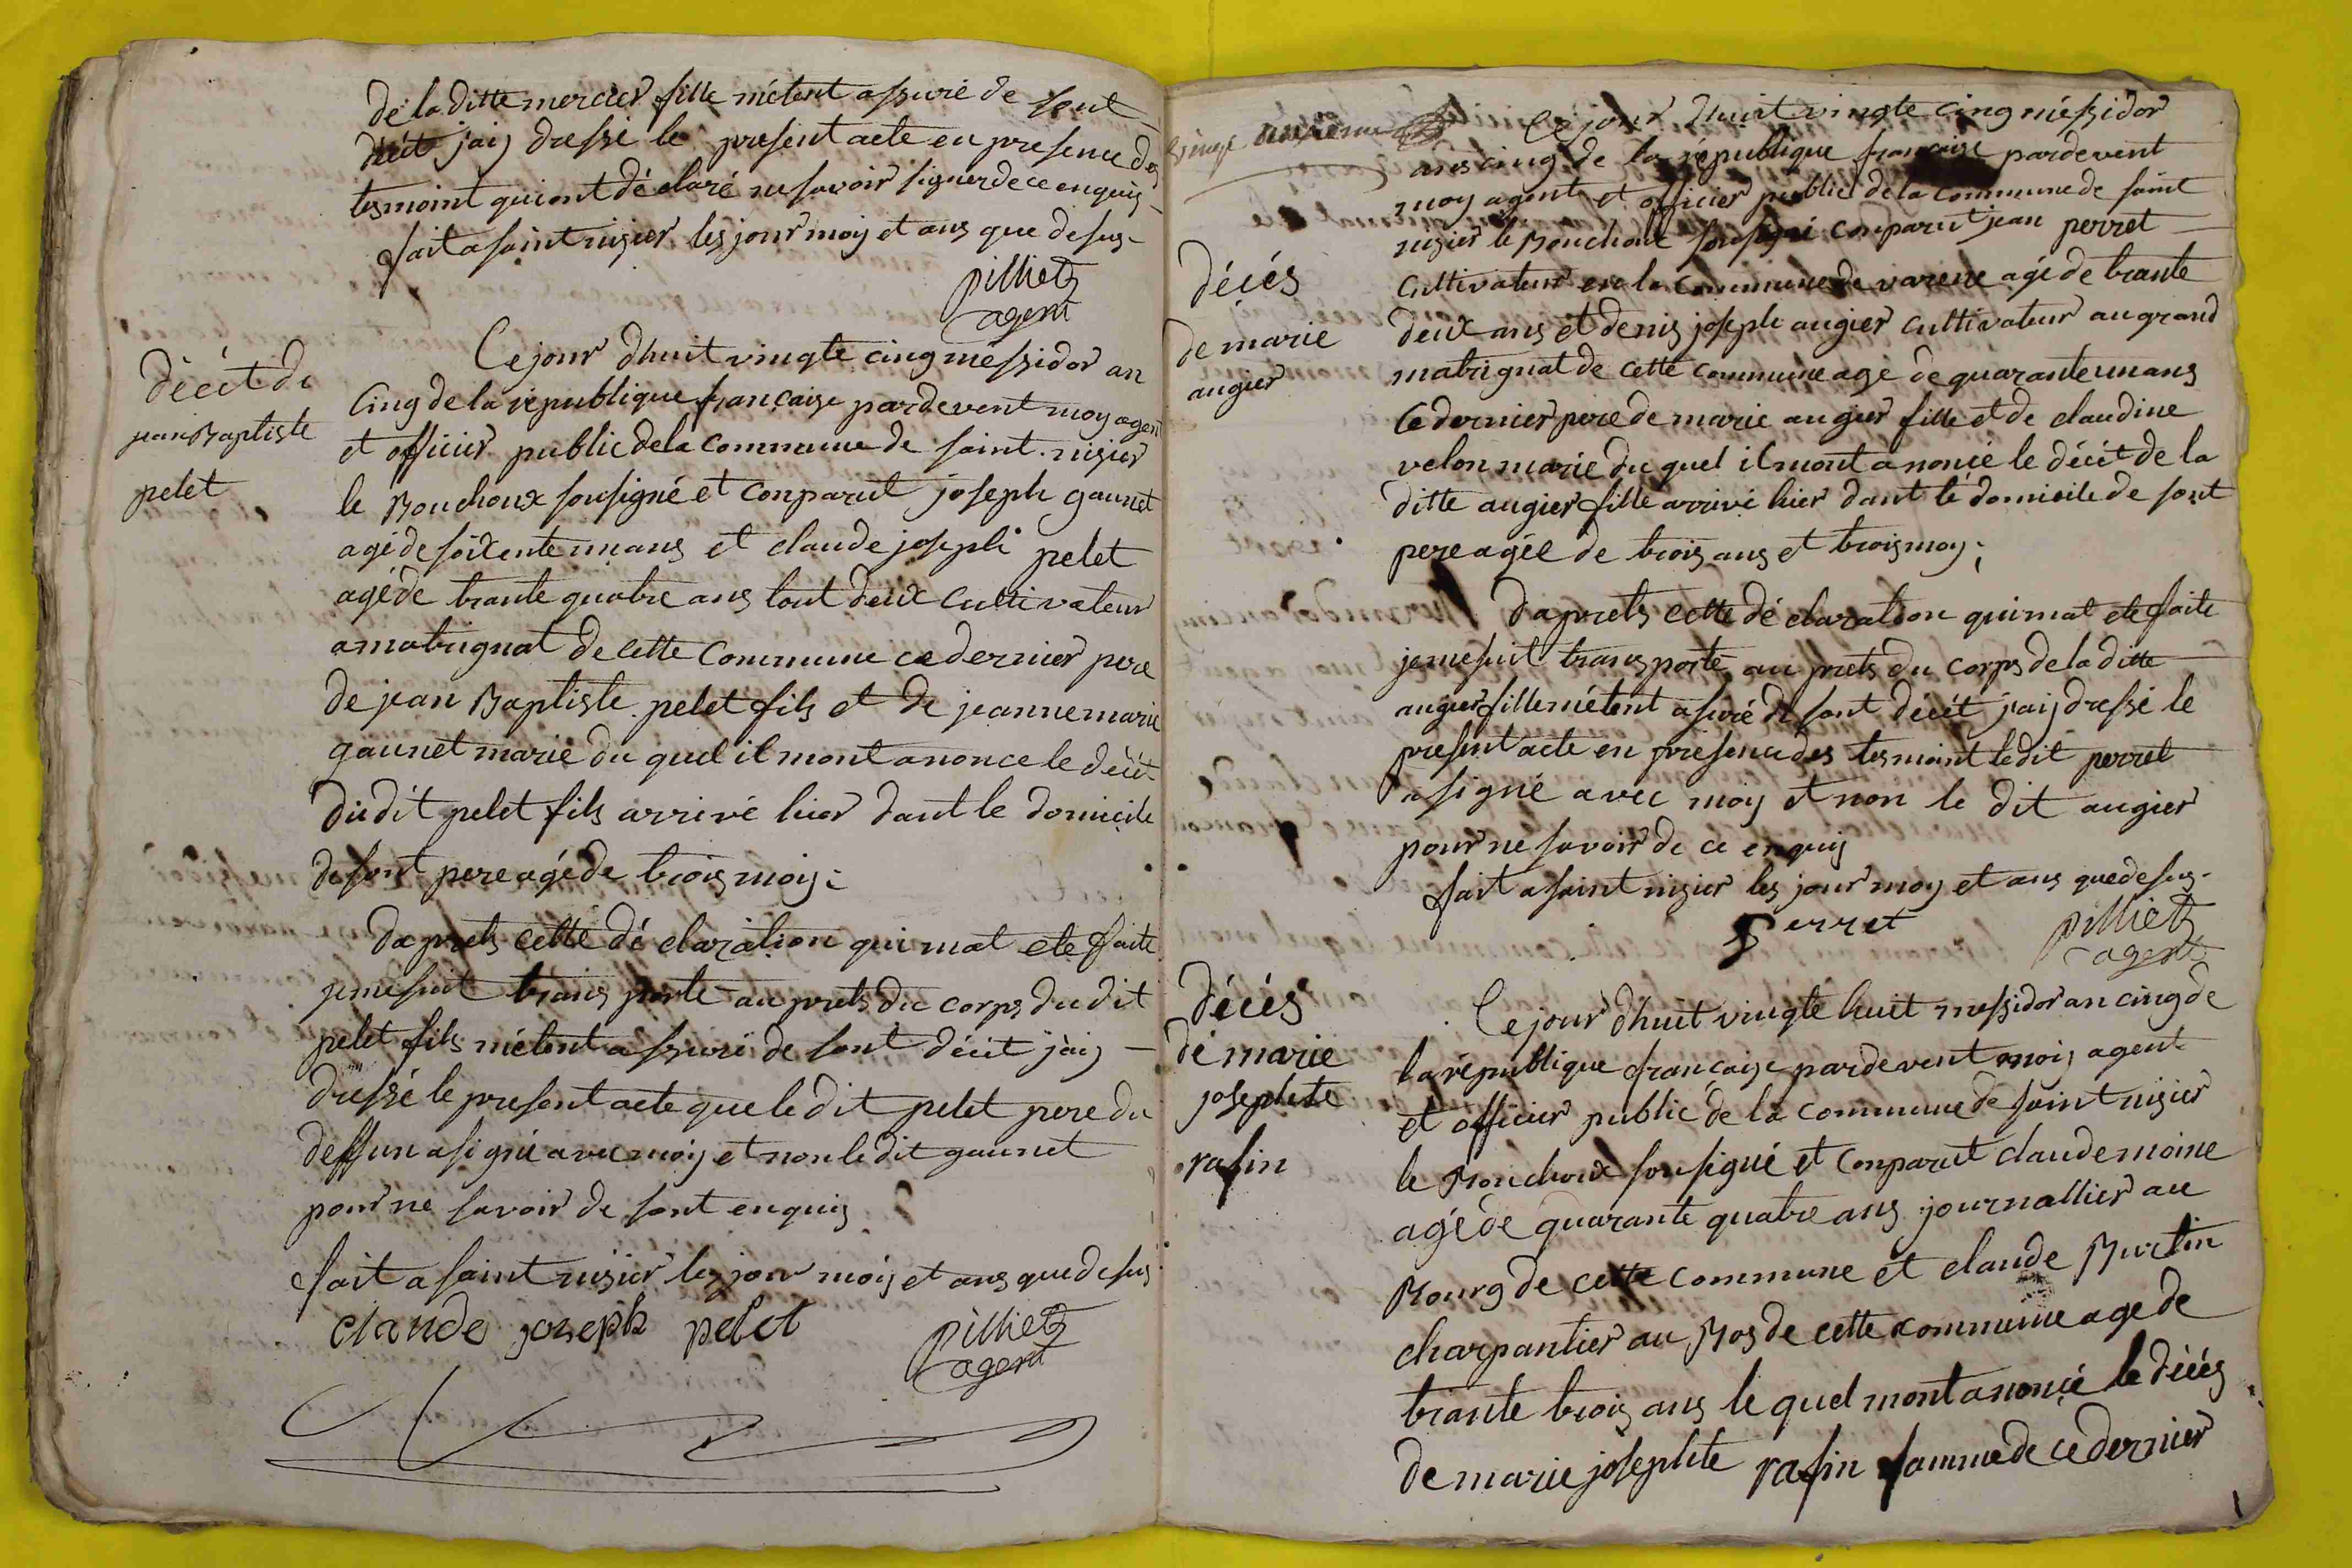 de la ditte mercier fille métent assuré de sont
décét jaij dressé le present acte en presence des
tesmoint qui ont dé claré ne savoir signer de ce enquis
fait a saint nisier les jour moij et ans que desus
pilliet
agent
décét de
jean Baptiste
pelet
Ce jour dhuit vingte cinq méssidor an
Cinq de la république francaise pardevent moy agent
et officier public de la commune de saint nisier
le Bouchoux sousigné et conparut joseph gaunet
agé de soixente un ans et claude joseph pelet
agé de trante quatre ans tout deux cultivateur
a matrignat de cette commune ce dernier pere
de jean Baptiste pelet fils et de jeanne marie
gaunet marié du quel il mont anonce le décét
dudit pelet fils arrivé hier dant le domicile
de sont pere agé de trois moij
Daprets cette dé claration qui mat ete faite
je me suit trans porté au prets du corps dudit
pelet fils métent assuré de sont décét jaij
dressé le present acte que le dit pelet pere du
deffun a signé avec moij et non le dit gaunet
pour ne savoir de sont enquis
fait a saint nisier les jour moij et ans que desus
claude joseph pelet
pilliet
agent
vingt
Ce jour dhuit vingte cinq méssidor
ans cinq de la république francaise pardevent
moy agent et officier public de la commune de saint
nisier le Bouchoux sousigné conparut jean perret
cultivateur en la commune de varene agé de trante
deux ans et denis joseph augier cultivateur au grand
matrignat de cette commune agé de quarante un ans
Ce dernier pere de marie augier fille et de claudine
velon marié du quel il mont anoncé le décét de la
ditte augier fille arrivé hier dant le domicile de sont
pere agéé de trois ans et trois moy
décés
de marie
augier
Daprets cette dé claration qui mat ete faite
je me suit trans porté au prets du corps de la ditte
augier fille métent asuré de sont décét jaij dressé le
present acte en présence des tesmoint le dit perret
a signé avec moij et non le dit augier
pour ne savoir de ce enquis
fait a saint nisier les jour moy et ans que desus
Perret
pilliet
agent
décés
de marie
josephte
rafin
Ce jour dhuit vingte huit messidor an cinq de
la république francaise pardevent moij agent
et officier public de la commune de saint nisier
le Bouchoux sousigné et conparut claude moine
agé de quarante quatre ans journallier au
Bourg de cette commune et claude Burtin
charpantier au Bos de cette commune age de
trante trois ans le quel mont anoncé le décés
de marie josephte rafin famme de ce dernier